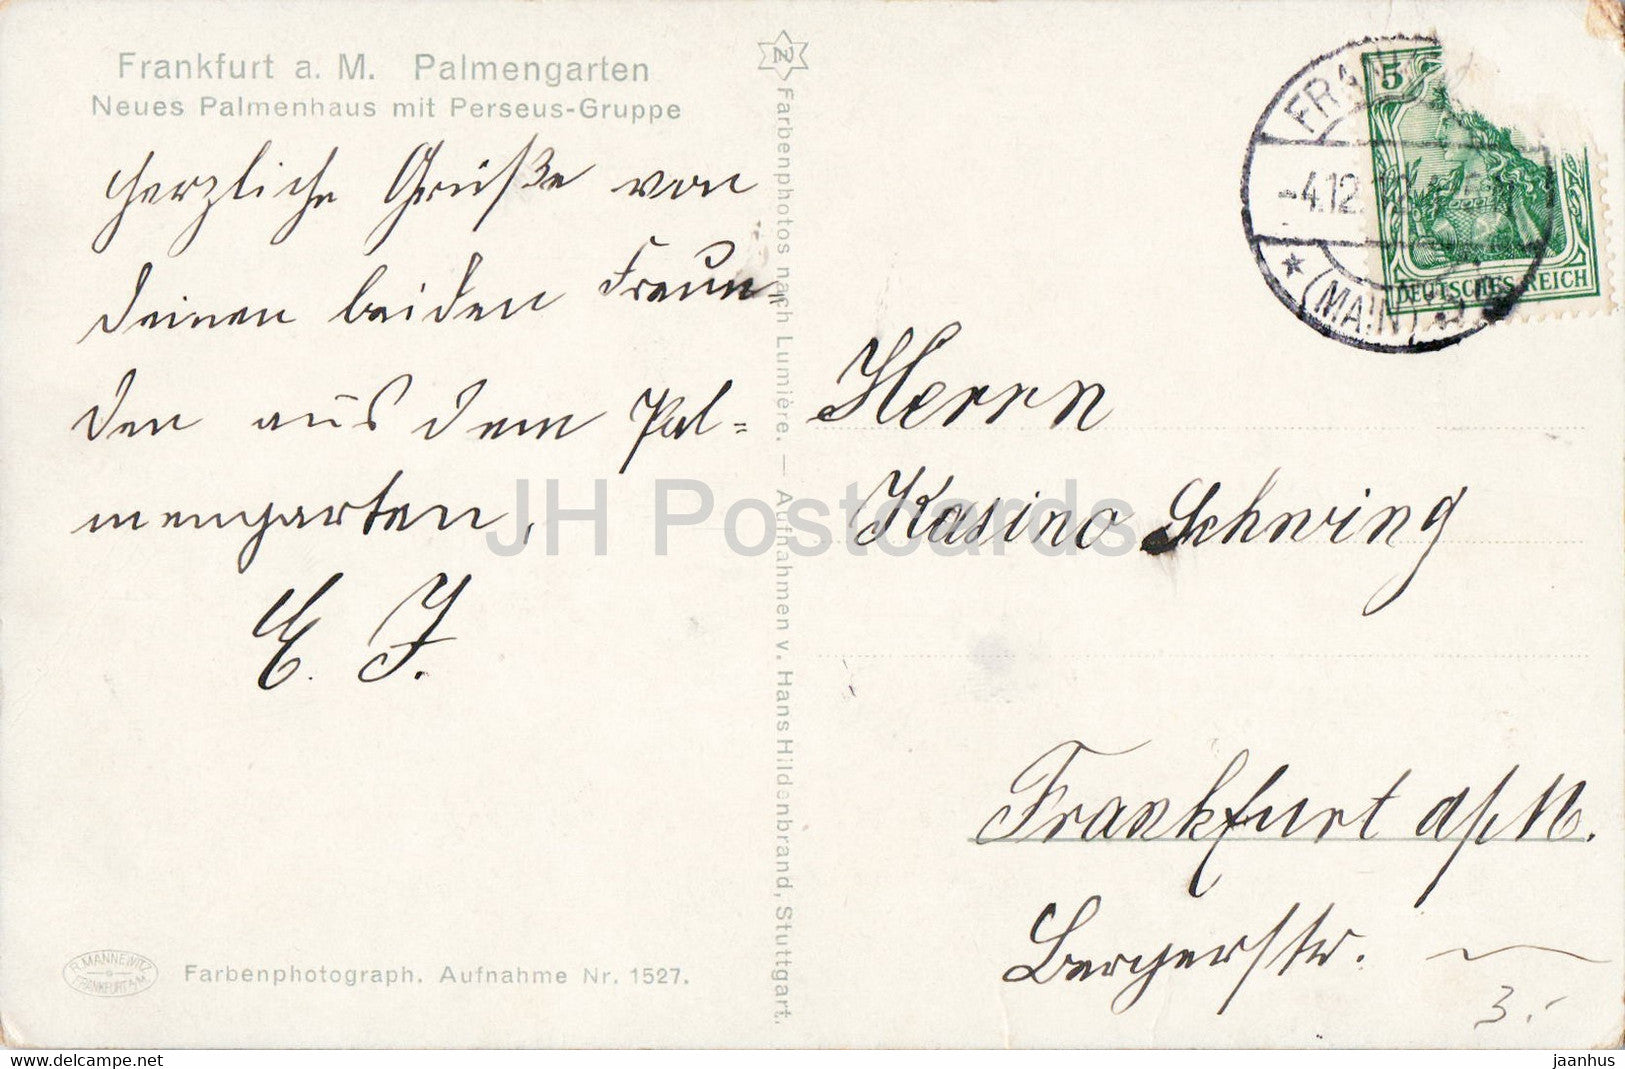 Frankfurt a. M. Palmengarten
Neues Palmenhaus mit Perseus-Gruppe
Herzliche Grüße von
deinen beiden Freun-
den aus dem Pal=
mengarten,
E. J.
R. MANNEWITZ
FRANKFURT A/M.
Farbenphotograph. Aufnahme Nr. 1527.
Farbenphotos nach Lumière. — Aufnahmen v. Hans Hildenbrand, Stuttgart.
5
DEUTSCHES REICH
FRAN
-4.12.12
(MAIN)
Herrn
Kasino Schwing
Frankfurt a/M.
Bergerstr.
3.-
JH Postcards
https://www.delcampe.net
jaanhus